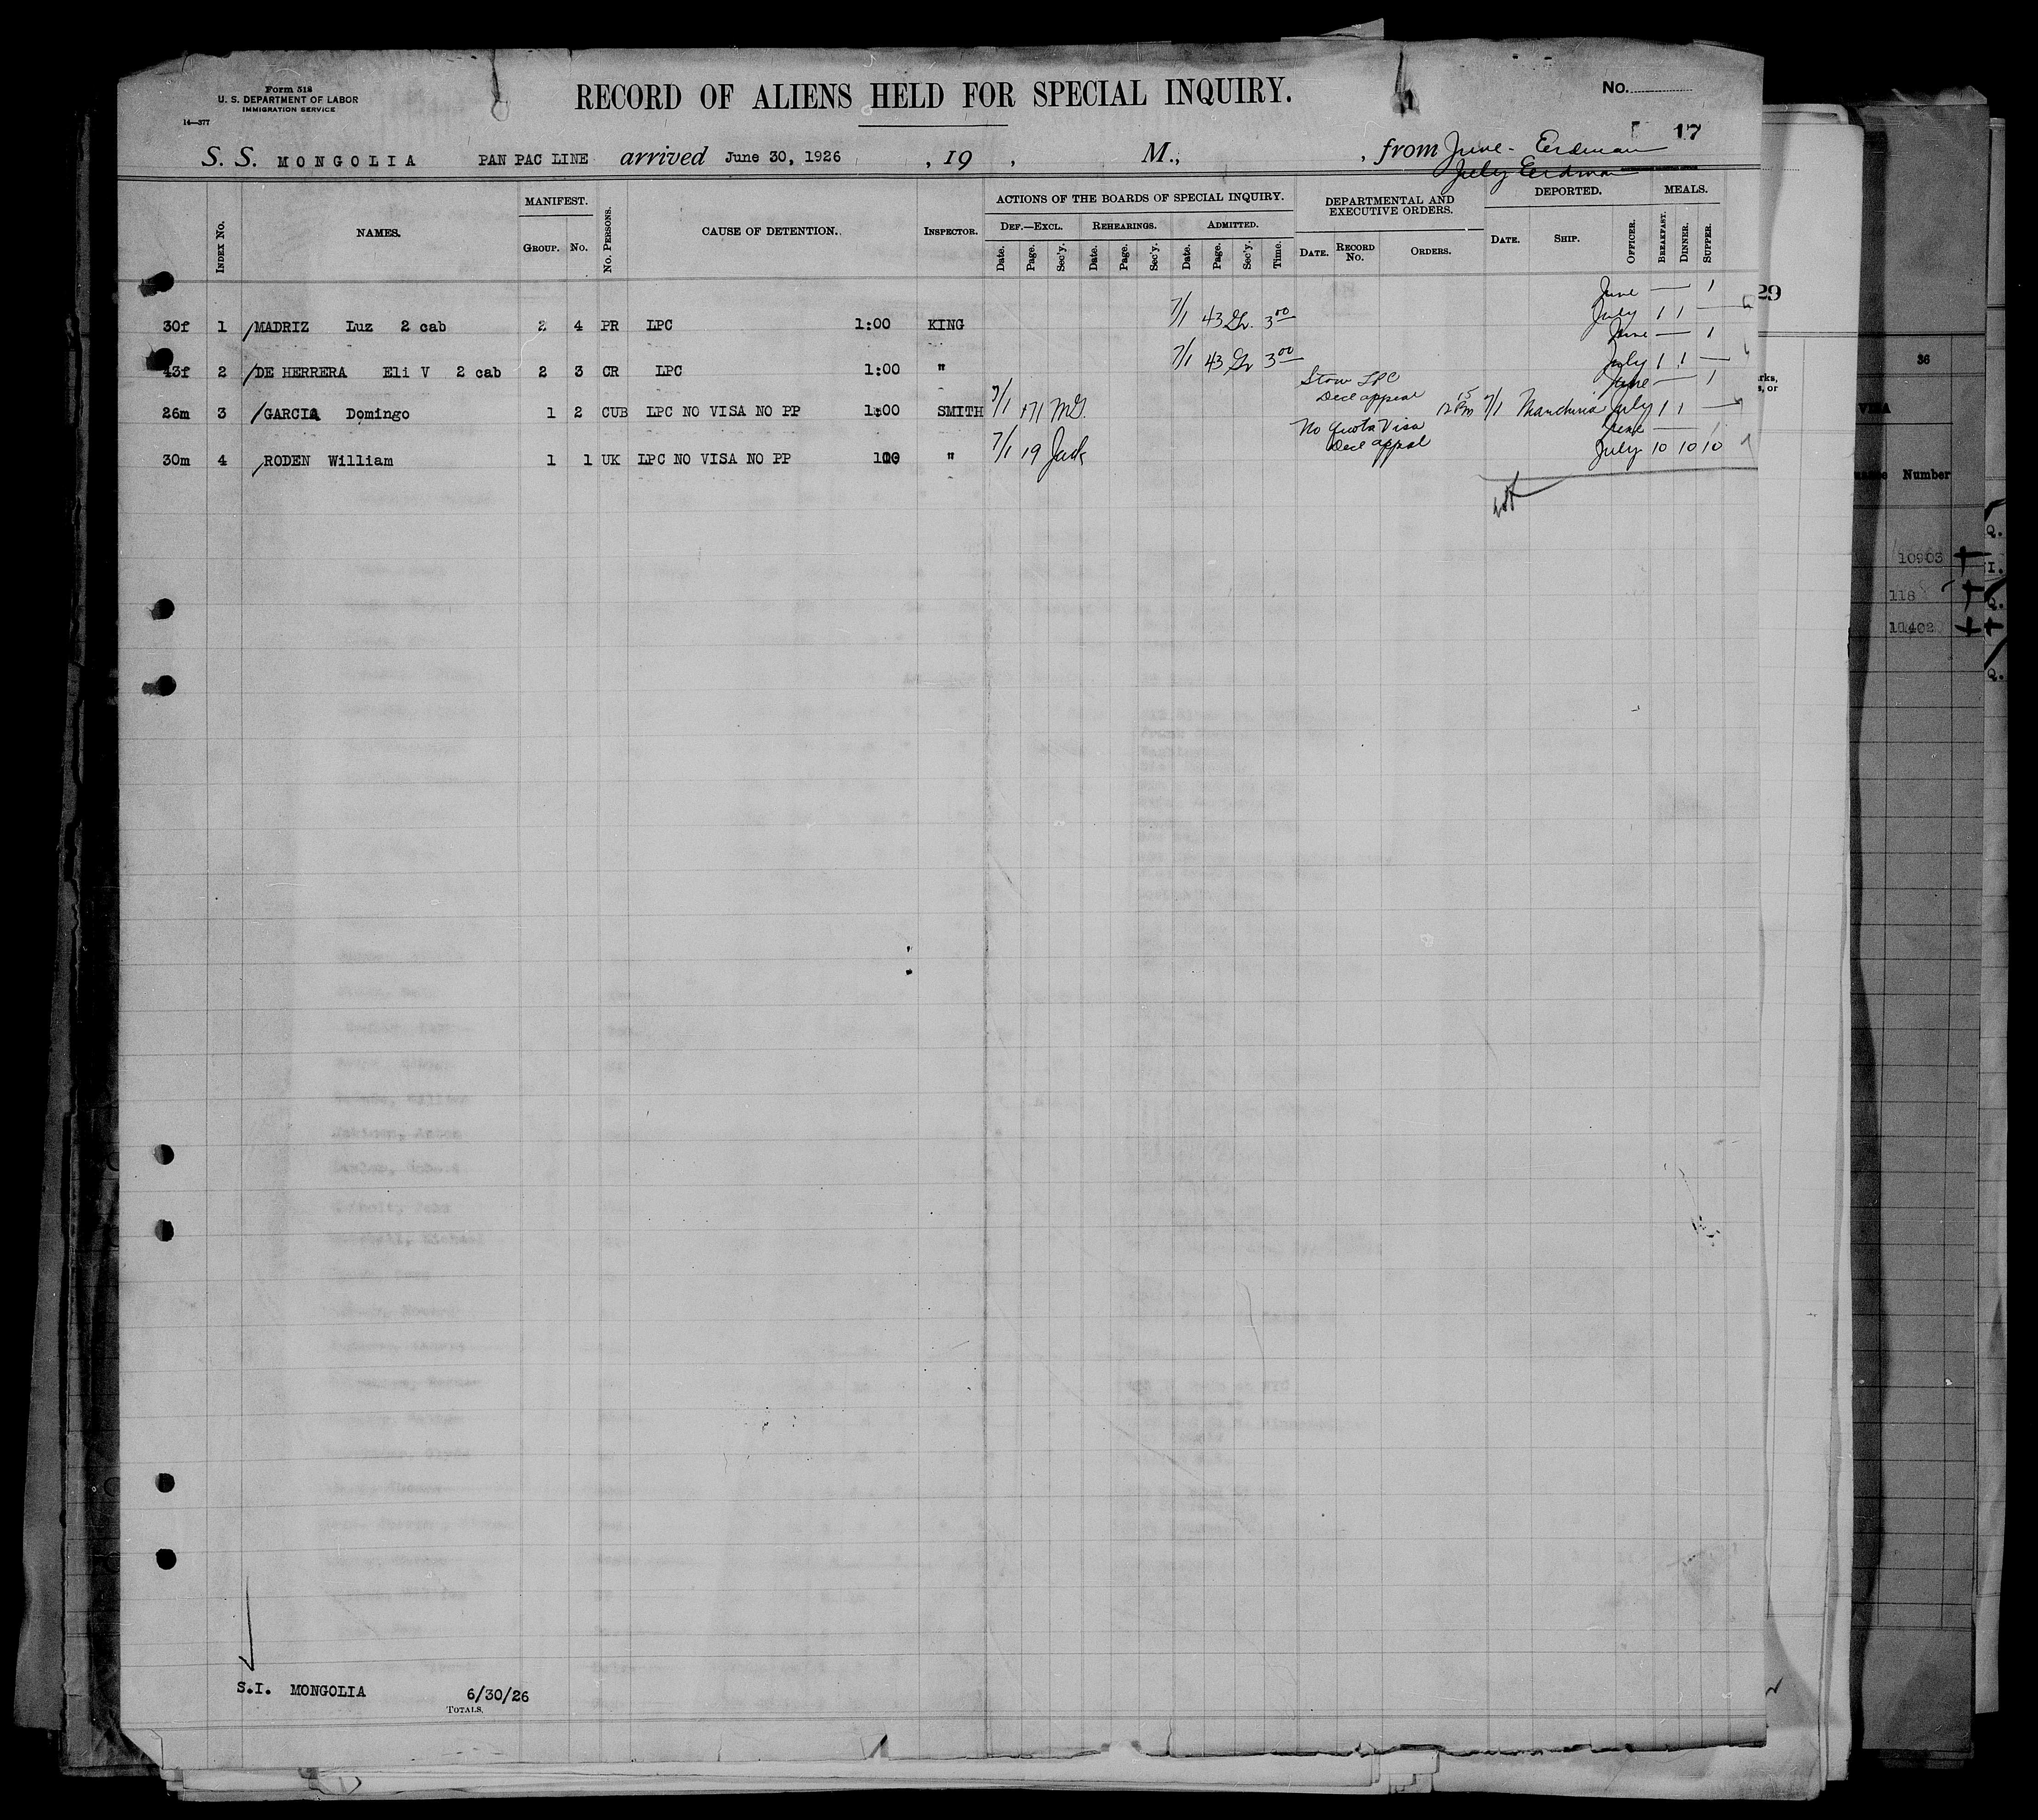 Form 518
U. S. DEPARTMENT OF LABOR
IMMIGRATION SERVICE
14—377
RECORD OF ALIENS HELD FOR SPECIAL INQUIRY.
No.
17
S. S. MONGOLIA PAN PAC LINE arrived June 30, 1926 , 19 , M., , from June - Erdman
July Erdman
INDEX No. NAMES. MANIFEST. GROUP. No. No. PERSONS. CAUSE OF DETENTION. INSPECTOR. ACTIONS OF THE BOARDS OF SPECIAL INQUIRY. DEF.—EXCL. Date. Page. Sec'y. REHEARINGS. Date. Page. Sec'y. ADMITTED. Date. Page. Sec'y. Time. DEPARTMENTAL AND EXECUTIVE ORDERS. DATE. RECORD No. ORDERS. DEPORTED. DATE. SHIP. OFFICER. MEALS. BREAKFAST. DINNER. SUPPER.
June — 1
30f 1 MADRIZ Luz 2 cab 2 4 PR LPC 1:00 KING 7/1 43 Gr. 3 00 July 1 1 —
June — 1
43f 2 DE HERRERA Eli V 2 cab 2 3 CR LPC 1:00 " 7/1 43 Gr 3 00 July 1 1 —
Stow LPC June — 1
26m 3 GARCIA Domingo 1 2 CUB LPC NO VISA NO PP 1:00 SMITH 7/1 171 McG. Decl appeal 12 15 Pm 7/1 Manchuria July 1 1 —
No Quota Visa June — 1
30m 4 RODEN William 1 1 UK LPC NO VISA NO PP 100 " 7/1 19 Jack Decl appeal July 10 10 10
S.I. MONGOLIA 6/30/26
TOTALS.
29
36
rks,
s, or
VISA
Number
10903
118
11402
Q.
I.
Q.
Q.